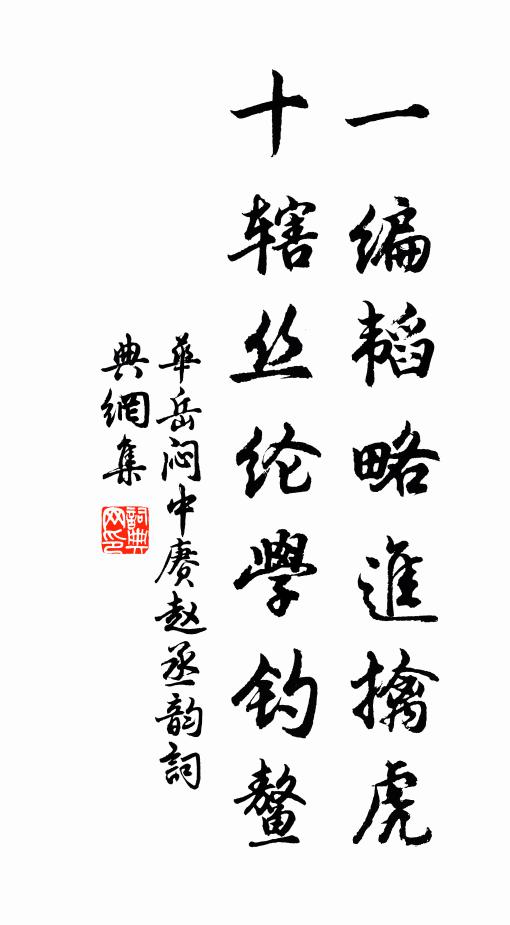 一编韬略進擒虎
十辖丝纶學钓鳌
華岳闷中赓赵丞韵詞
典網集
詞典
网印